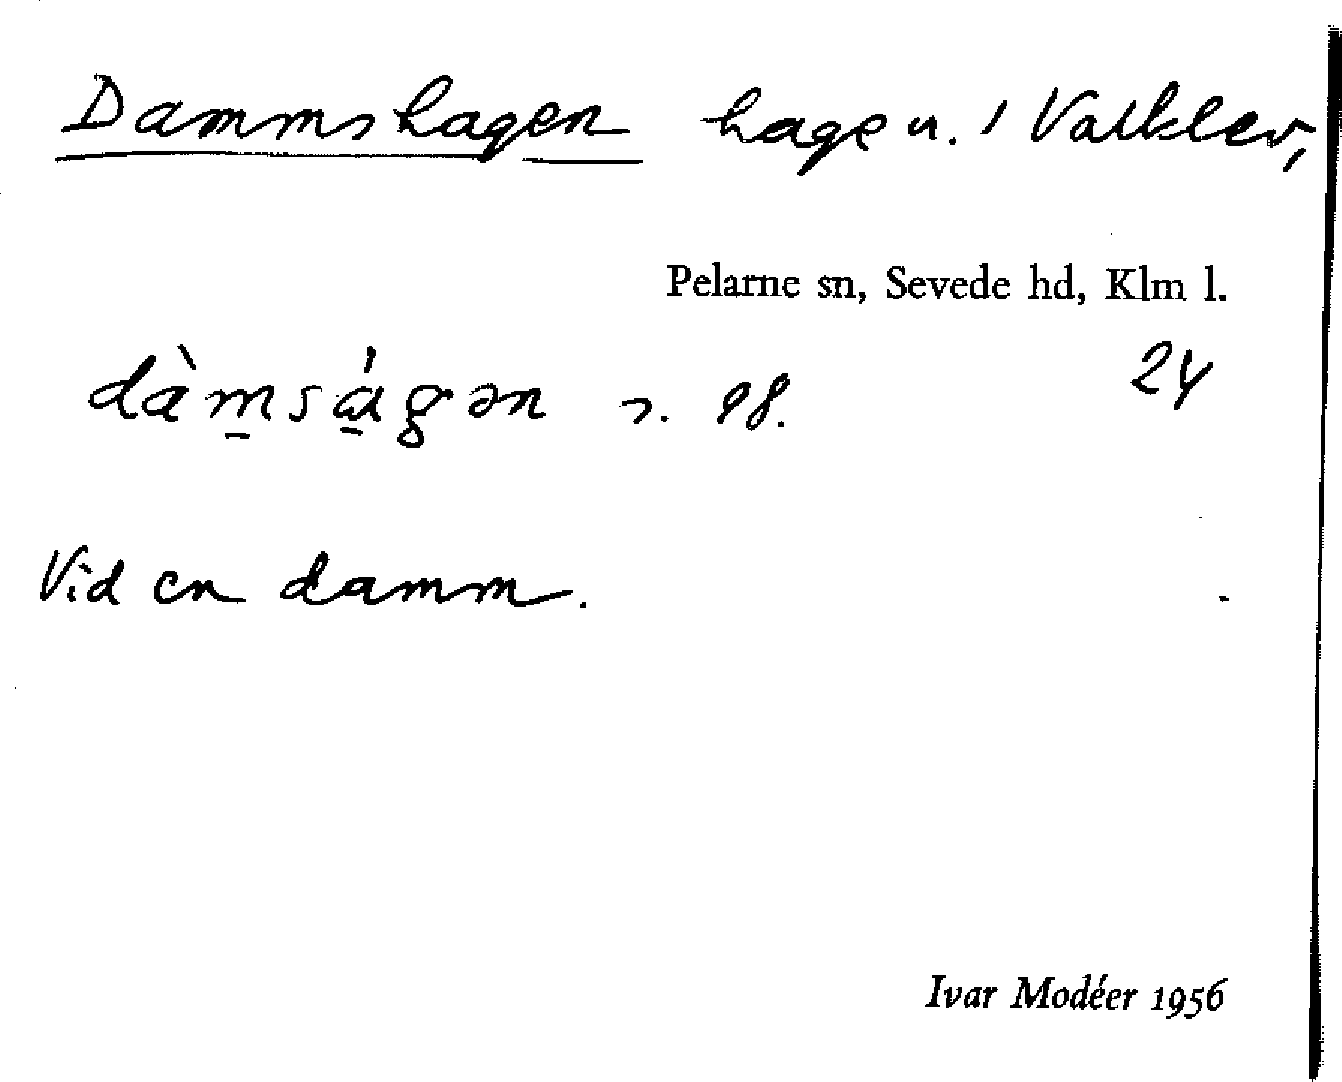 Dammshagen hage u. / Valklev,
Pelarne sn, Sevede hd, Klm l.
24
dàmságən s. 98.
Vid en damm.
Ivar Modéer 1956